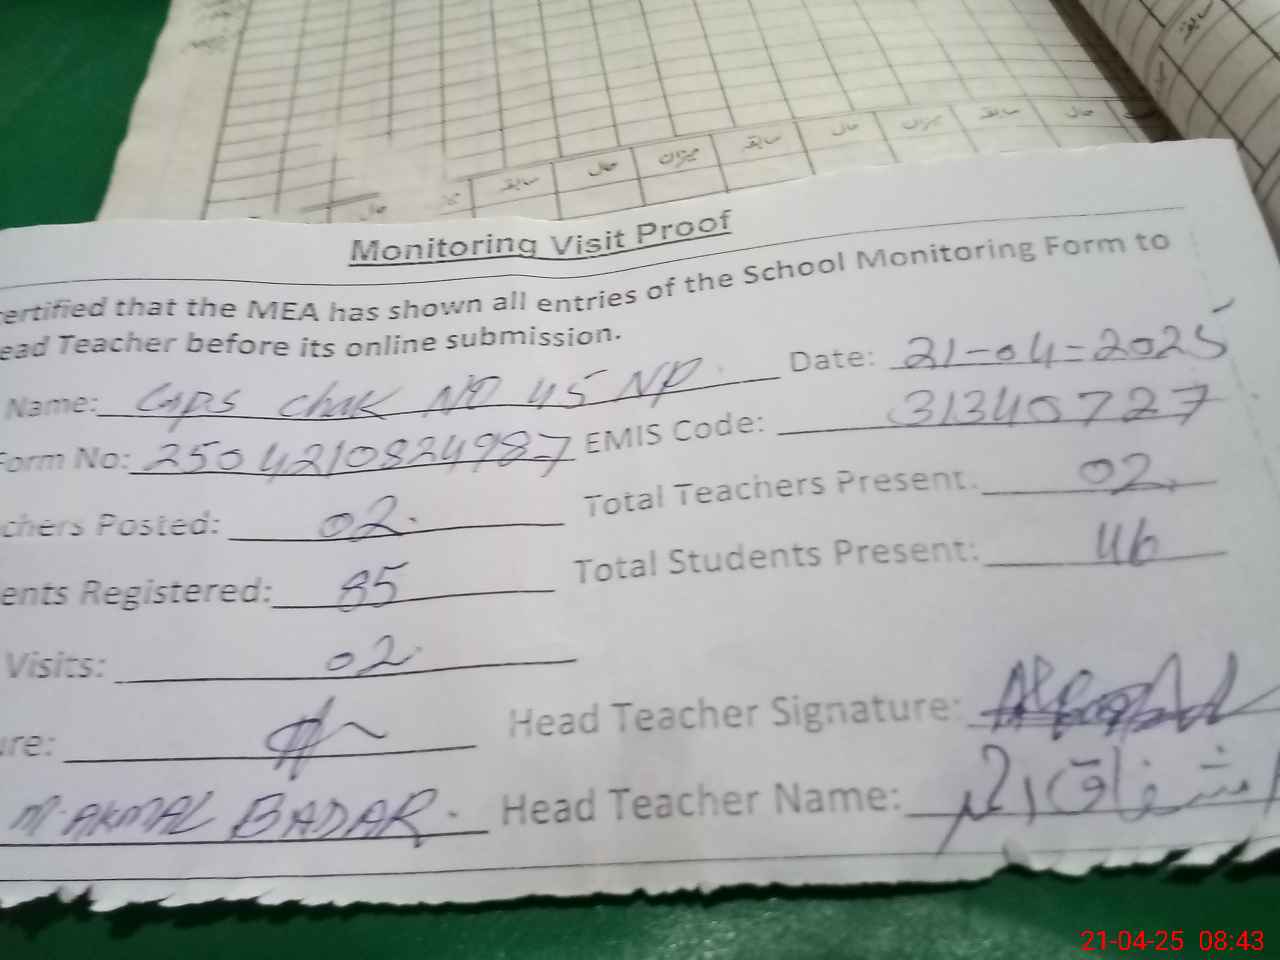 سابقہ
حال
میزان
سابقہ
حال
میزان
سابقہ
حال
Monitoring Visit Proof
ertified that the MEA has shown all entries of the School Monitoring Form to
ead Teacher before its online submission.
Name: GPS Chak NO 45 NP. Date: 21-04-2025
Form No: 250421082498-7 EMIS Code: 31340727
chers Posted: 02. Total Teachers Present: 02.
ents Registered: 85 Total Students Present: 46
Visits: 02.
ure: Head Teacher Signature:
M. AKMAL BADAR. Head Teacher Name: اشفاق احمد
21-04-25 08:43